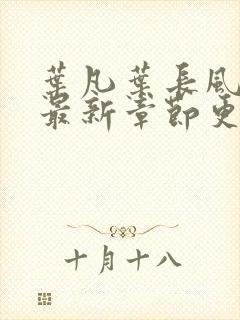 葉凡葉長風
最新章節更
十月十八